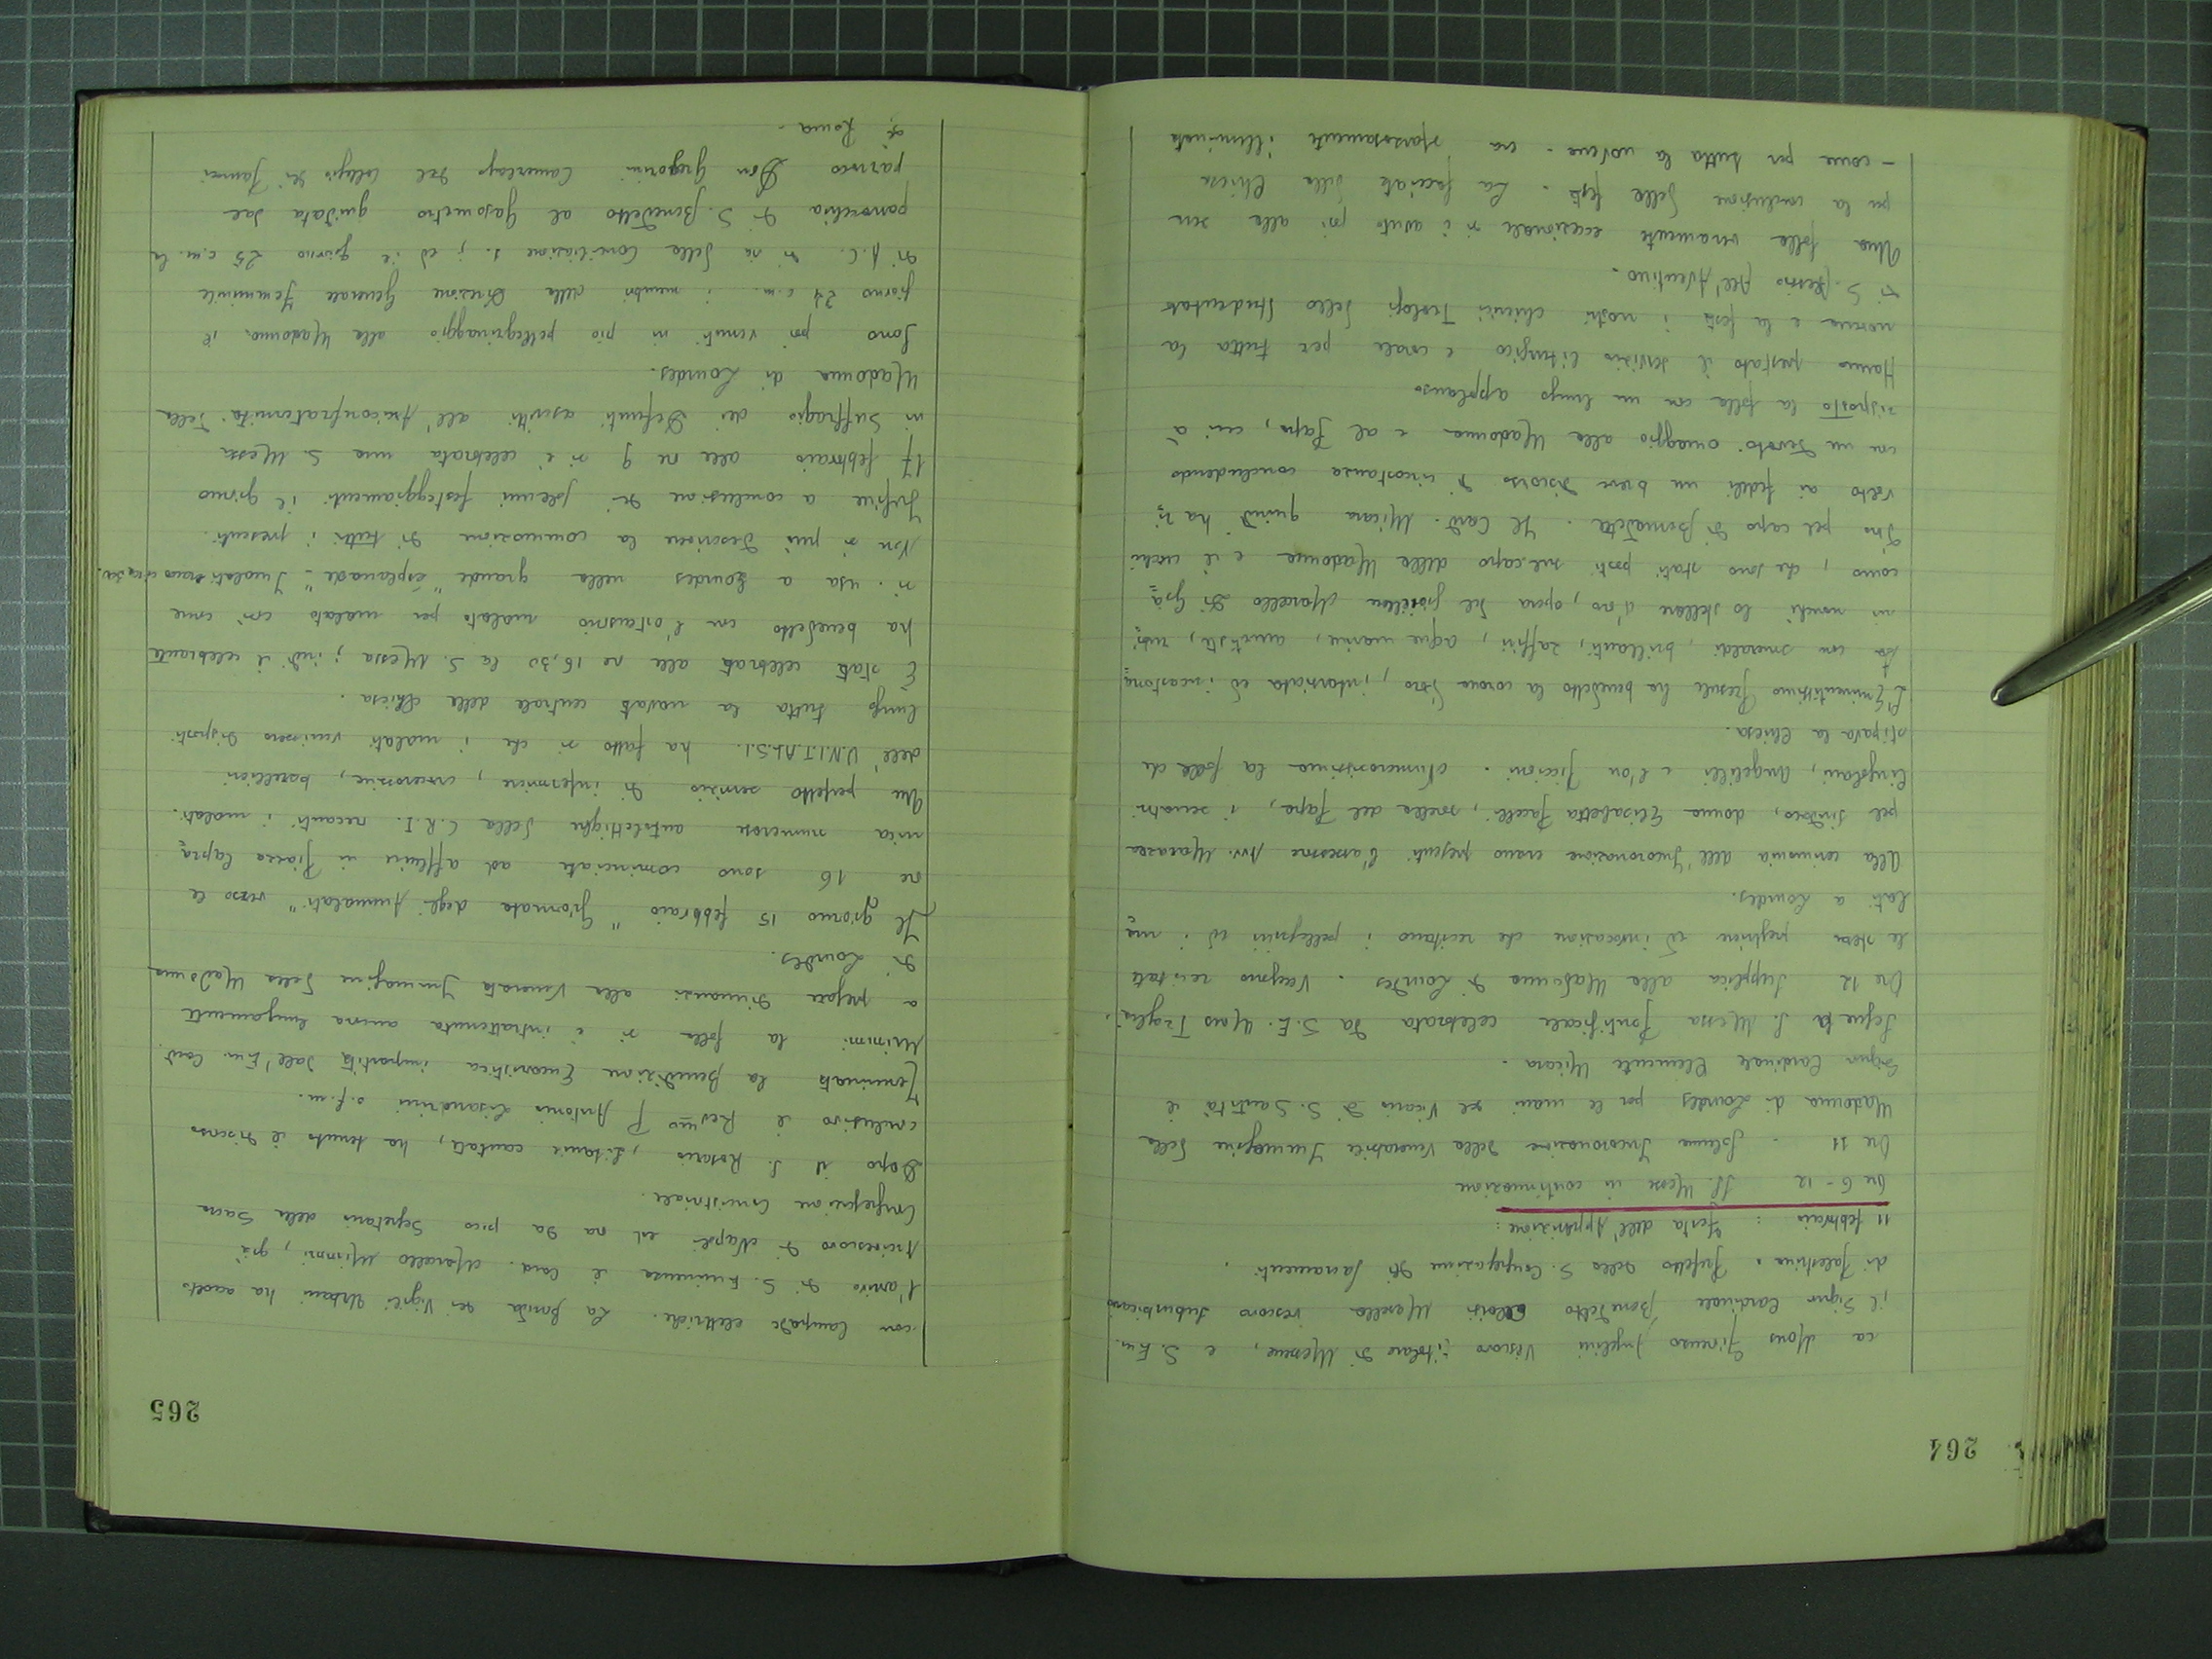 264
ca Mons Fiorenzo Angelini Vescovo titolare di Messene, e S. Em.
il Signor Cardinale Benedetto Aloisi Masella vescovo suburbicario
di Palestrina, Prefetto della S. Congregazione dei Sacramenti.
11 febbraio : Festa dell'Apparizione :
Ore 6 - 12 SS. Messe in continuazione
Ore 11 . Solenne Incoronazione della Venerabile Immagine della
Madonna di Lourdes per le mani del Vicario di S. Santità il
Signor Cardinale Clemente Micara .
Segue la S. Messa Pontificale celebrata da S. E. Mons Traglia.
Ore 12 Supplica alla Madonna di Lourdes . Vengono recitate
le stesse preghiere ed invocazione che recitano i pellegrini ed i ma
lati a Lourdes.
Alla cerimonia dell'Incoronazione erano presenti l'assessore Avv. Marazza
pel sindaco, donna Elisabetta Pacelli, sorella del Papa, i senatori
Cingolani, Angelilli e l'on Piccioni . Numerosissima la folla che
stipava la Chiesa.
L'Eminentissimo Presule ha benedetto la corona d'oro, intarsiata ed incastona
ta con smeraldi, brillanti, zaffiri, acque marine, ametiste, rubi
ni nonché lo stellare d'oro, opera del gioielliere Marcello di Gia
como, che sono stati posti sul capo della Madonna e il nichi
d'oro pel capo di Bernadetta . Il Card. Micara quindi ha ri
volto ai fedeli un breve discorso di circostanza concludendo
con un devoto omaggio alla Madonna e al Papa, cui à
risposto la folla con un lungo applauso
Hanno prestato il servizio liturgico e corale per tutta la
novena e la festa i nostri chierici Teologi dello Studentato
di S. Alessio All'Aventino.
Una folla veramente eccezionale si è avuta poi alla sera
per la conclusione della festa . La facciata della Chiesa
- come per tutta la novena - era sfarzosamente illuminata
265
con lampade elettriche. La banda dei Vigili Urbani ha accolto
l'arrivo di S. Eminenza il Card. Marcello Mimmi, già
Arcivescovo di Napoli ed ora da poco Segretario della Sacra
Congregazione Concistoriale.
Dopo il S. Rosario, Litanie cantate, ha tenuto il discorso
conclusivo il Rev.mo P Antonio Lisandrini o.f.m.
Terminata la Benedizione Eucaristica impartita dall'Em. Card
Mimmi la folla si è intrattenuta ancora lungamente
a pregare dinnanzi alla Venerata Immagine della Madonna
di Lourdes.
Il giorno 15 febbraio "Giornata degli Ammalati" verso le
ore 16 sono cominciate ad affluire in Piazza Capra
nica numerose autolettighe della C.R.I. recanti i malati.
Un perfetto servizio di infermiere, crocerossine, barellieri
dell'U.N.I.T.A.L.S.I. ha fatto si che i malati venissero disposti
lungo tutta la navata centrale della Chiesa.
È stata celebrata alle ore 16,30 la S. Messa ; indi il celebrante
ha benedetto con l'ostensorio malato per malato così come
si usa a Lourdes nella grande "esplanade". Inalati erano
Non si può descrivere la commozione di tutti i presenti.
Infine a conclusione dei solenni festeggiamenti il giorno
17 febbraio alle ore 9 si è celebrata una S. Messa
in Suffragio dei Defunti ascritti all'Arciconfraternita della
Madonna di Lourdes.
Sono poi venuti in pio pellegrinaggio alla Madonna, il
giorno 24 c.m. i membri della Direzione Generale Femminile
di A.C. di via della Conciliazione 1 ; ed il giorno 25 c.m. la
parrocchia di S. Benedetto al Gasometro guidata dal
parroco Don Gregorini Camerlengo del Collegio dei Parroci
di Roma.